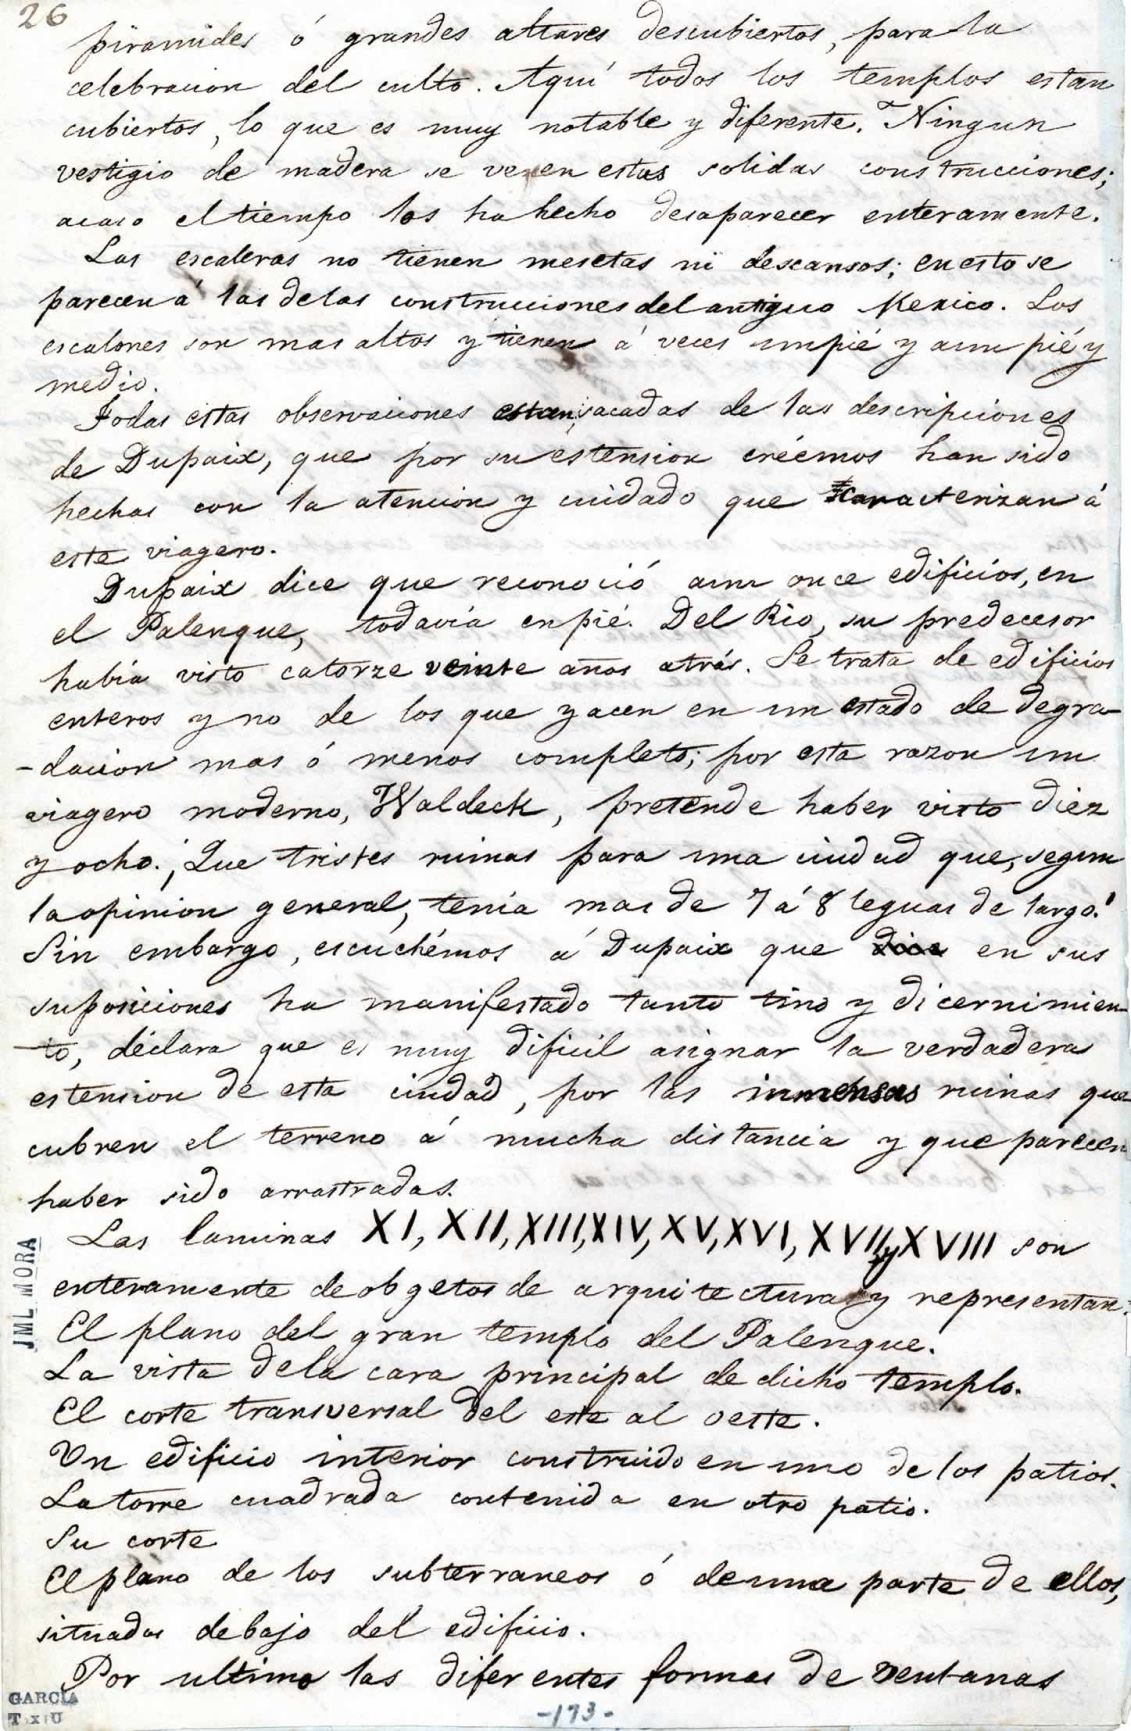 26
piramides ó grandes altares descubiertos, para la
celebracion del culto. Aquí todos los templos estan
cubiertos, lo que es muy notable y diferente. Ningun
vestigio de madera se ve en estas solidas construcciones;
acaso el tiempo los ha hecho desaparecer enteramente.
Las escaleras no tienen mesetas ni descansos; en esto se
parecen á las de las construcciones del antiguo Mexico. Los
escalones son mas altos y tienen á veces un pié y aun pié y
medio.
Todas estas observaciones estan sacadas de las descripciones
de Dupaix, que por su estension créemos han sido
hechas con la atencion y cuidado que caracterizan á
este viagero.
Dupaix dice que reconoció aun once edificios, en
el Palenque, todavía en pié. Del Rio, su predecesor
había visto catorze veinte años atrás. Se trata de edificios
enteros y no de los que yacen en un estado de degra-
-dacion mas ó menos completo; por esta razon un
viagero moderno, Waldeck, pretende haber visto diez
y ocho. ¡Que tristes ruinas para una ciudad que, segun
la opinion general, tenía mas de 7 á 8 leguas de largo!
Sin embargo, escuchémos á Dupaix que dice en sus
suposiciones ha manifestado tanto tino y dicernimien-
-to, déclara que es muy dificil asignar la verdadera
estension de esta ciudad, por las inmensas ruinas que
cubren el terreno á mucha distancia y que parecen
haber sido arrastradas.
Las laminas XI, XII, XIII, XIV, XV, XVI, XVII y XVIII son
enteramente de obgetos de arquitectura y representan:
El plano del gran templo del Palenque.
La vista de la cara principal de dicho templo.
El corte transversal del este al oeste.
Un edificio interior construido en uno de los patios.
La torre cuadrada contenida en otro patio.
Su corte
El plano de los subterraneos ó de una parte de ellos,
situados debajo del edificio.
Por ultimo las diferentes formas de ventanas
JML MORA
GARCÍA
-173-